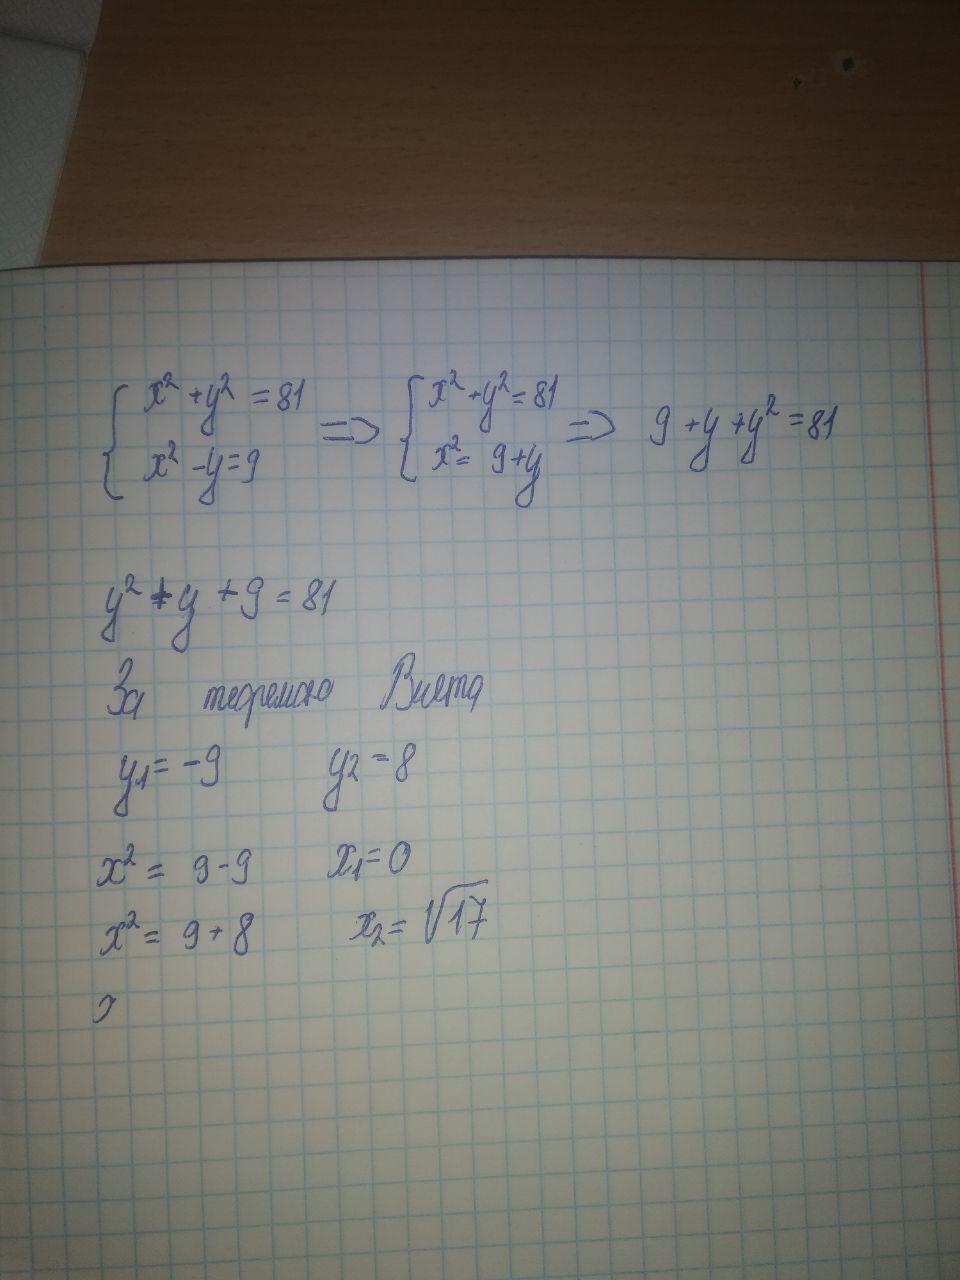 { x² + y² = 81 x² - y = 9 => { x² + y² = 81 x² = 9 + y => 9 + y + y² = 81
y² + y + 9 = 81
За теоремою Виета
y₁ = -9 y₂ = 8
x² = 9 - 9 x₁ = 0
x² = 9 + 8 x₂ = √17
x